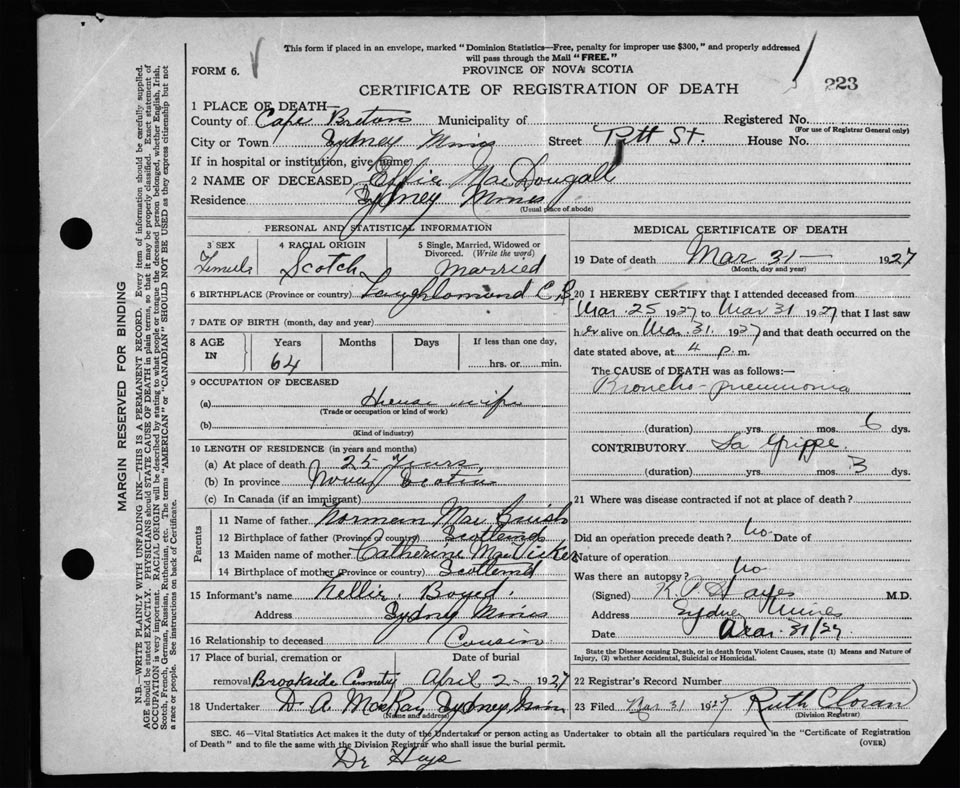 This form if placed in an envelope, marked "Dominion Statistics—Free, penalty for improper use $300," and properly addressed
will pass through the Mail "FREE."
FORM 6.
PROVINCE OF NOVA SCOTIA
223
CERTIFICATE OF REGISTRATION OF DEATH
1 PLACE OF DEATH—
County of Cape Breton Municipality of Registered No.
(For use of Registrar General only)
City or Town Sydney Mines Street Pitt St. House No.
If in hospital or institution, give name
2 NAME OF DECEASED Effie MacDougall
Residence Sydney Mines
(Usual place of abode)
PERSONAL AND STATISTICAL INFORMATION
3 SEX Female
4 RACIAL ORIGIN Scotch
5 Single, Married, Widowed or Divorced. (Write the word) Married
6 BIRTHPLACE (Province or country) C.B.
7 DATE OF BIRTH (month, day and year)
8 AGE IN Years Months Days If less than one day,
64 hrs. or min.
9 OCCUPATION OF DECEASED
(a) House wife
(Trade or occupation or kind of work)
(b)
(Kind of industry)
10 LENGTH OF RESIDENCE (in years and months)
(a) At place of death 25 Years
(b) In province Nova Scotia
(c) In Canada (if an immigrant)
Parents
11 Name of father Norman Mac
12 Birthplace of father (Province or country) Scotland
13 Maiden name of mother Catherine MacVicker
14 Birthplace of mother (Province or country) Scotland
15 Informant's name Nellie Boyd
Address Sydney Mines
16 Relationship to deceased Cousin
17 Place of burial, cremation or removal Brookside Cemetery
Date of burial April 2 - 1927
18 Undertaker D A MacKay Sydney Mines
(Name and address)
MEDICAL CERTIFICATE OF DEATH
19 Date of death Mar 31 — 1927
(Month, day and year)
20 I HEREBY CERTIFY that I attended deceased from
Mar. 25 1927 to Mar 31 1927 that I last saw
her alive on Mar. 31. 1927 and that death occurred on
date stated above, at 4 p. m.
The CAUSE of DEATH was as follows:—
Broncho-pneumonia
(duration) yrs. mos. 6 dys.
CONTRIBUTORY La Grippe
(duration) yrs. mos. 3 dys.
21 Where was disease contracted if not at place of death?
Did an operation precede death? No Date of
Nature of operation
Was there an autopsy? No
(Signed) Hayes M.D.
Address Sydney Mines
Date Mar. 31/27.
State the Disease causing Death, or in death from Violent Causes, state (1) Means and Nature of
Injury, (2) whether Accidental, Suicidal or Homicidal.
22 Registrar's Record Number
23 Filed Mar 31 1927 Ruth Cloran
(Division Registrar)
SEC. 46—Vital Statistics Act makes it duty of the Undertaker or person acting as Undertaker to obtain all the particulars required in the "Certificate of Registration
of Death" and to file the same with the Division Registrar who shall issue the burial permit.
(OVER)
Dr Hays
MARGIN RESERVED FOR BINDING
N.B.—WRITE PLAINLY WITH UNFADING INK—THIS IS A PERMANENT RECORD. Every item of information should be carefully supplied.
AGE should be stated EXACTLY. PHYSICIANS should STATE CAUSE OF DEATH in plain terms, so that it may be properly classified. Exact statement of
OCCUPATION is very important. RACIAL ORIGIN will be described by stating to what people or tongue the deceased person belonged, whether English, Irish,
Scotch, French, German, Russian, Ruthenian, etc. The terms "AMERICAN" or "CANADIAN" SHOULD NOT BE USED as they express citizenship but not
a race or people. See instructions on back of Certificate.